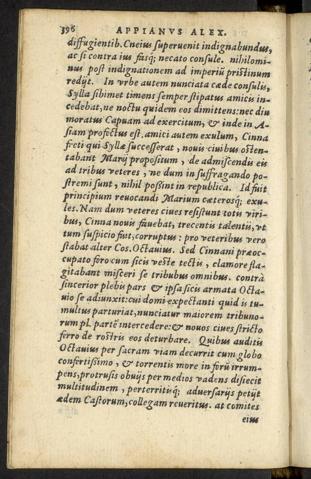 396 APPIANVS ALEX.
diffugientib. Cneius superuenit indignabundus,
ac si contra ius fasq; necato consule. nihilomi-
nus post indignationem ad imperiũ pristinum
redijt. In vrbe autem nunciata cæde consulis,
Sylla sibimet timens semper stipatus amicis in-
cedebat, ne noctu quidem eos dimittens: nec diu
moratus Capuam ad exercitum, & inde in A-
siam profectus est. amici autem exulum, Cinna
freti qui Syllæ successerat, nouis ciuibus osten-
tabant Marij propositum, de admiscendis eis
ad tribus veteres, ne dum in suffragando po-
stremi sunt, nihil possint in republica. Id fuit
principium reuocandi Marium cæterosq; exu-
les. Nam dum veteres ciues resistunt totis viri-
bus, Cinna nouis fauebat, trecentis talentis, vt
tum suspicio fuit, corruptus: pro veteribus vero
stabat alter Cos. Octauius. Sed Cinnani præoc-
cupato foro cum sicis veste tectis, clamore fla-
gitabant misceri se tribubus omnibus. contrà
sincerior plebis pars & ipsa sicis armata Octa-
uio se adiunxit: cui domi expectanti quid is tu-
multus parturiat, nunciatur maiorem tribuno-
rum pl. partẽ intercedere: & nouos ciues stricto
ferro de rostris eos deturbare. Quibus auditis
Octauius per sacram viam decurrit cum globo
confertissimo, & torrentis more in forũ irrum-
pens, protrusis obuijs per medios vadens disiecit
multitudinem, perterritisq; aduersarijs petijt
ædem Castorum, collegam reueritus. at comites
eius